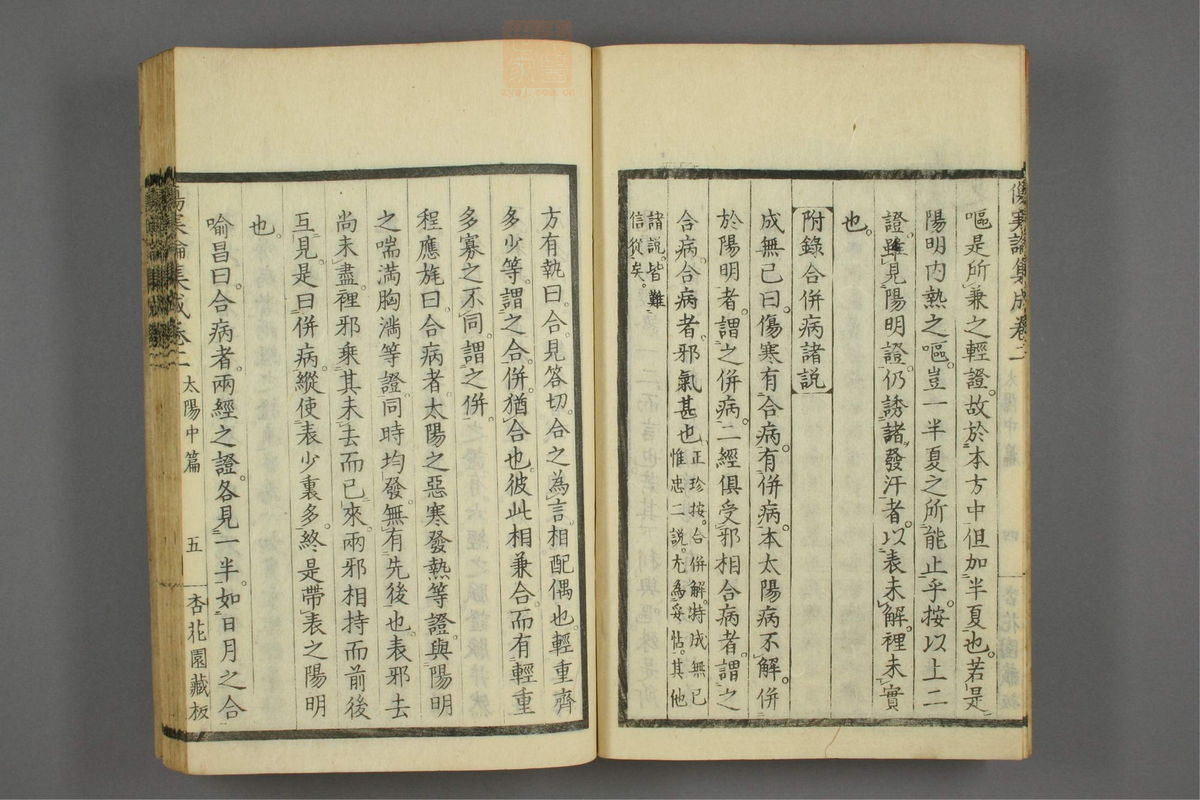 嘔是所兼之輕證。故於本方中但加半夏也。若是
陽明內熱之嘔。豈一半夏之所能止乎。按以上二
證。雖見陽明證。仍誘諸發汗者。以表未解。裡未實
也。
附錄合併病諸説
成無已曰。傷寒有合病。有併病。本太陽病不解。併
於陽明者。謂之併病。二經俱受邪相合病者。謂之
合病。合病者。邪氣甚也。
正珍按。合併解。特成無已
惟忠二説。尤爲妥帖。其他
諸説。皆難
信從矣。
傷寒論集成卷二
方有執曰。合。見答切。合之爲言。相配偶也。輕重齊
多少等。謂之合。併猶合也。彼此相兼合而有輕重
多寡之不同。謂之併。
程應旄曰。合病者。太陽之惡寒發熱等證。與陽明
之喘満胸満等證。同時均發。無有先後也。表邪去
尚未盡。裡邪乘其未去而已來。兩邪相持而前後
互見。是曰併病。縱使表少裏多。終是帶表之陽明
也。
喻昌曰。合病者。兩經之證。各見一半。如日月之合
傷寒論集成卷二
太陽中篇
五
杏花園藏板